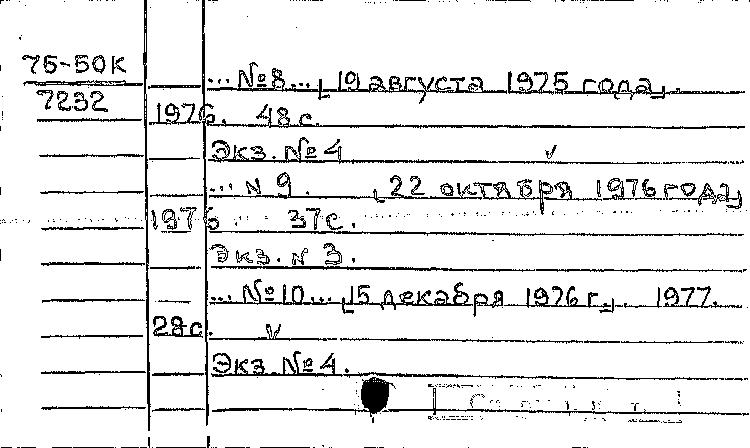 75-50К
... №8... [19 августа 1975 года].
7232
1976. 48с.
Экз. №4 ✓
... N 9. [22 октября 1976 года]
1976 37с.
Экз. N 3.
... №10... [15 декабря 1976 г.]. 1977.
28с. ✓
Экз. №4.